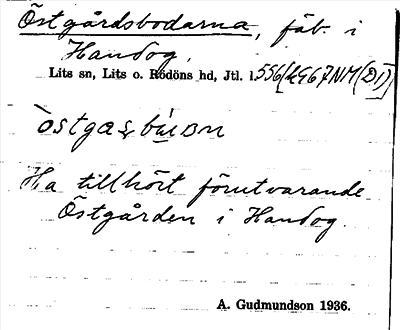 Östgårdsbodarna, fäb. i
Handog,
Lits sn, Lits o. Rödöns hd, Jtl.
Ha tillhört förutvarande
Östgården i Handog.
A. Gudmundson 1936.